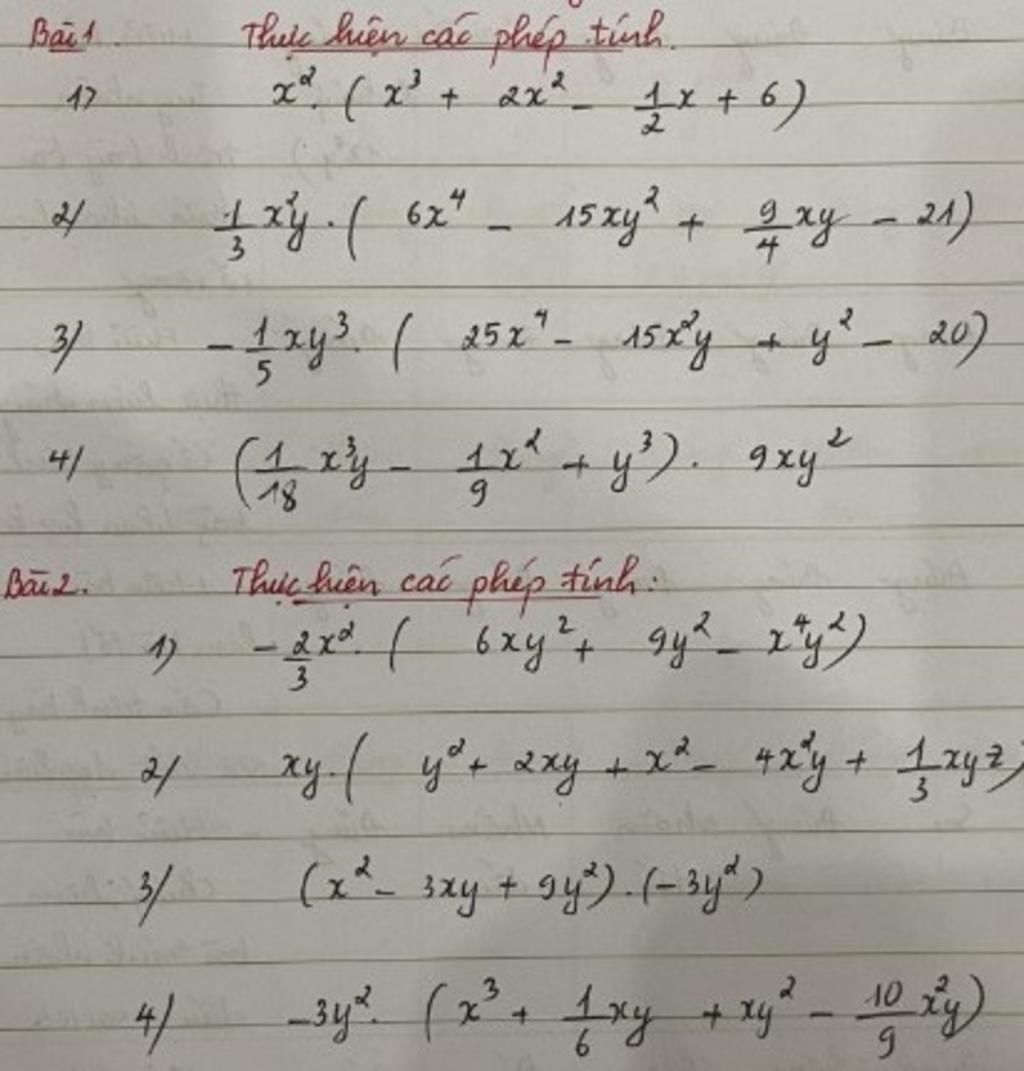 Bài 1. Thực hiện các phép tính.
1) x². (x³ + 2x² - 1/2 x + 6)
2/ 1/3 x²y . ( 6x⁴ - 15xy² + 9/4 xy - 21)
3/ - 1/5 xy³. ( 25x⁴ - 15x²y + y² - 20)
4/ (1/18 x³y - 1/9 x² + y³) . 9xy²
Bài 2. Thực hiện các phép tính:
1) - 2/3 x². ( 6xy² + 9y² - x⁴y²)
2/ xy. ( y² + 2xy + x² - 4x²y + 1/3 xyz)
3/ (x² - 3xy + 9y²) . (-3y²)
4/ -3y². (x³ + 1/6 xy + xy² - 10/9 x²y)